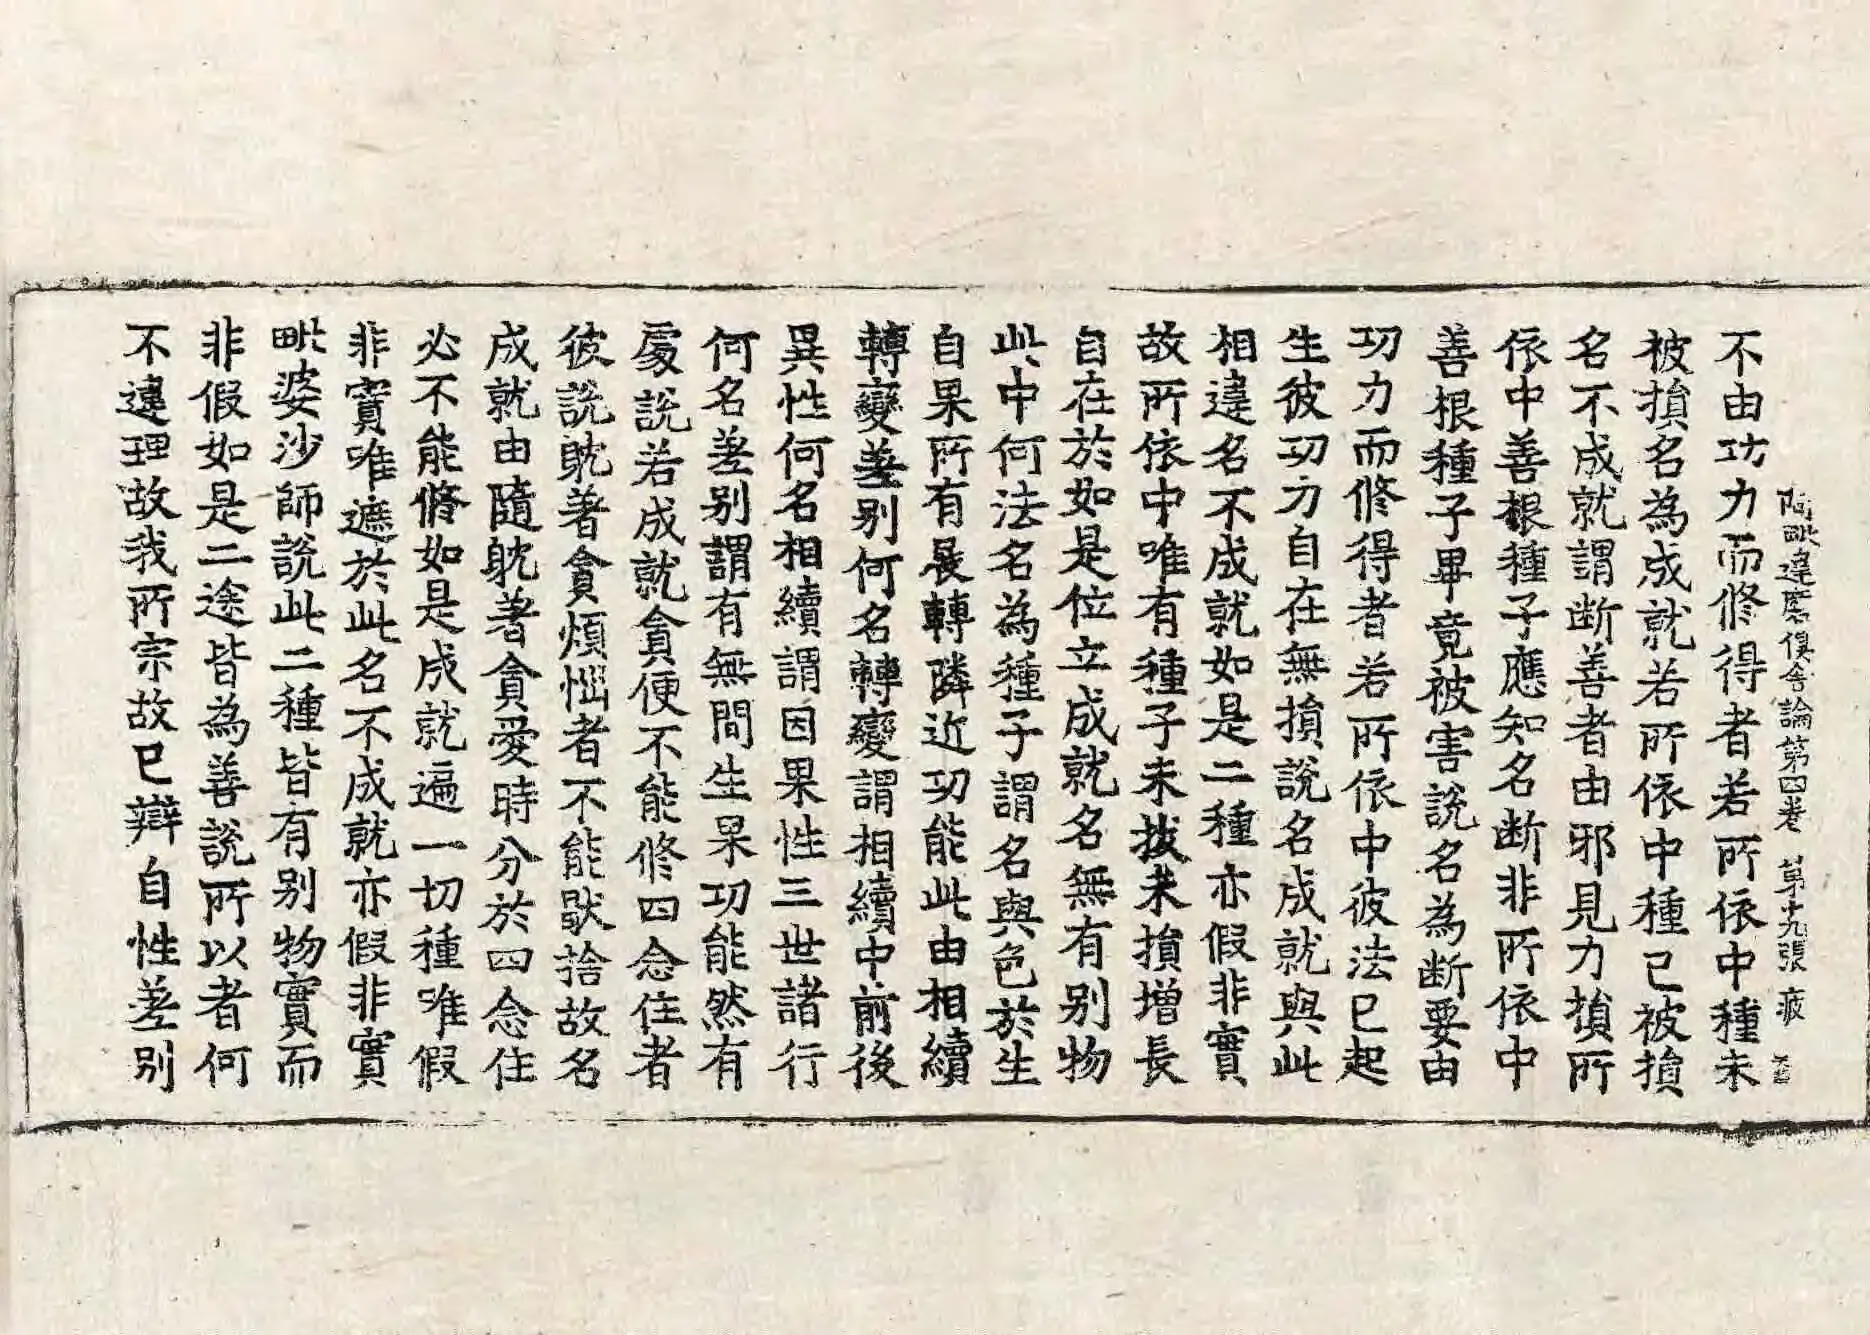 阿毗達磨俱舍論第四卷　第十九張　疲
不由功力而修得者若所依中種未
被損名為成就若所依中種已被損
名不成就謂斷善者由邪見力損所
依中善根種子應知名斷非所依中
善根種子畢竟被害說名為斷要由
功力而修得者若所依中彼法已起
生彼功力自在無損說名成就與此
相違名不成就如是二種亦假非實
故所依中唯有種子未拔未損增長
自在於如是位立成就名無有別物
此中何法名為種子謂名與色於生
自果所有展轉隣近功能此由相續
轉變差別何名轉變謂相續中前後
異性何名相續謂因果性三世諸行
何名差別謂有無間生果功能然有
處說若成就貪便不能修四念住者
彼說躭著貪煩惱者不能猒捨故名
成就由隨躭著貪愛時分於四念住
必不能脩如是成就遍一切種唯假
非實唯遮於此名不成就亦假非實
毗婆沙師說此二種皆有別物實而
非假如是二途皆為善說所以者何
不違理故我所宗故已辯自性差別